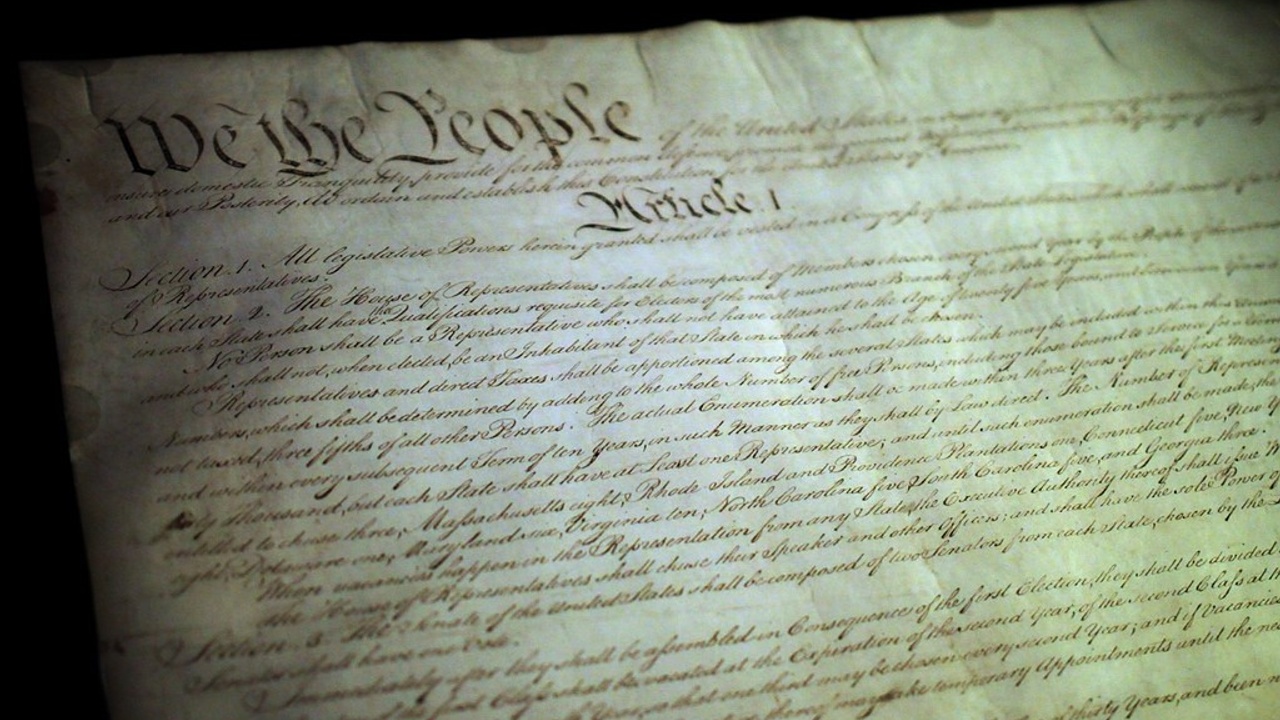 We the People of the United States
insure domestic Tranquility, provide for the common defence,
and our Posterity, do ordain and establish this Constitution for the United States of America.
Article. I
Section. 1. All legislative Powers herein granted shall be vested in a Congress of the United States
of Representatives.
Section. 2. The House of Representatives shall be composed of Members chosen every second Year by the People of the several
in each State shall have the Qualifications requisite for Electors of the most numerous Branch of the State Legislature.
No Person shall be a Representative who shall not have attained to the Age of twenty five Years, and been
and who shall not, when elected, be an Inhabitant of that State in which he shall be chosen.
Representatives and direct Taxes shall be apportioned among the several States which may be included within this
Numbers, which shall be determined by adding to the whole Number of free Persons, including those bound to Service for a
not taxed, three fifths of all other Persons. The actual Enumeration shall be made within three Years after the first Meeting
and within every subsequent Term of ten Years, in such Manner as they shall by Law direct. The Number of
Thousand, but each State shall have at Least one Representative; and until such enumeration shall be made, the
entitled to chuse three, Massachusetts eight, Rhode Island and Providence Plantations one, Connecticut five, New
eight, Delaware one, Maryland six, Virginia ten, North Carolina five, South Carolina five, and Georgia three.
When vacancies happen in the Representation from any State, the Executive Authority thereof shall issue
the House of Representatives shall chuse their Speaker and other Officers; and shall have the sole Power of
Section. 3. The Senate of the United States shall be composed of two Senators from each State, chosen by the
Senator shall have one Vote.
Immediately after they shall be assembled in Consequence of the first Election, they shall be divided
of the first Class shall be vacated at the Expiration of the second Year, of the second Class at the
Year, so that one third may be chosen every second Year; and if Vacancies
thereof may make temporary Appointments until the
thirty Years, and been